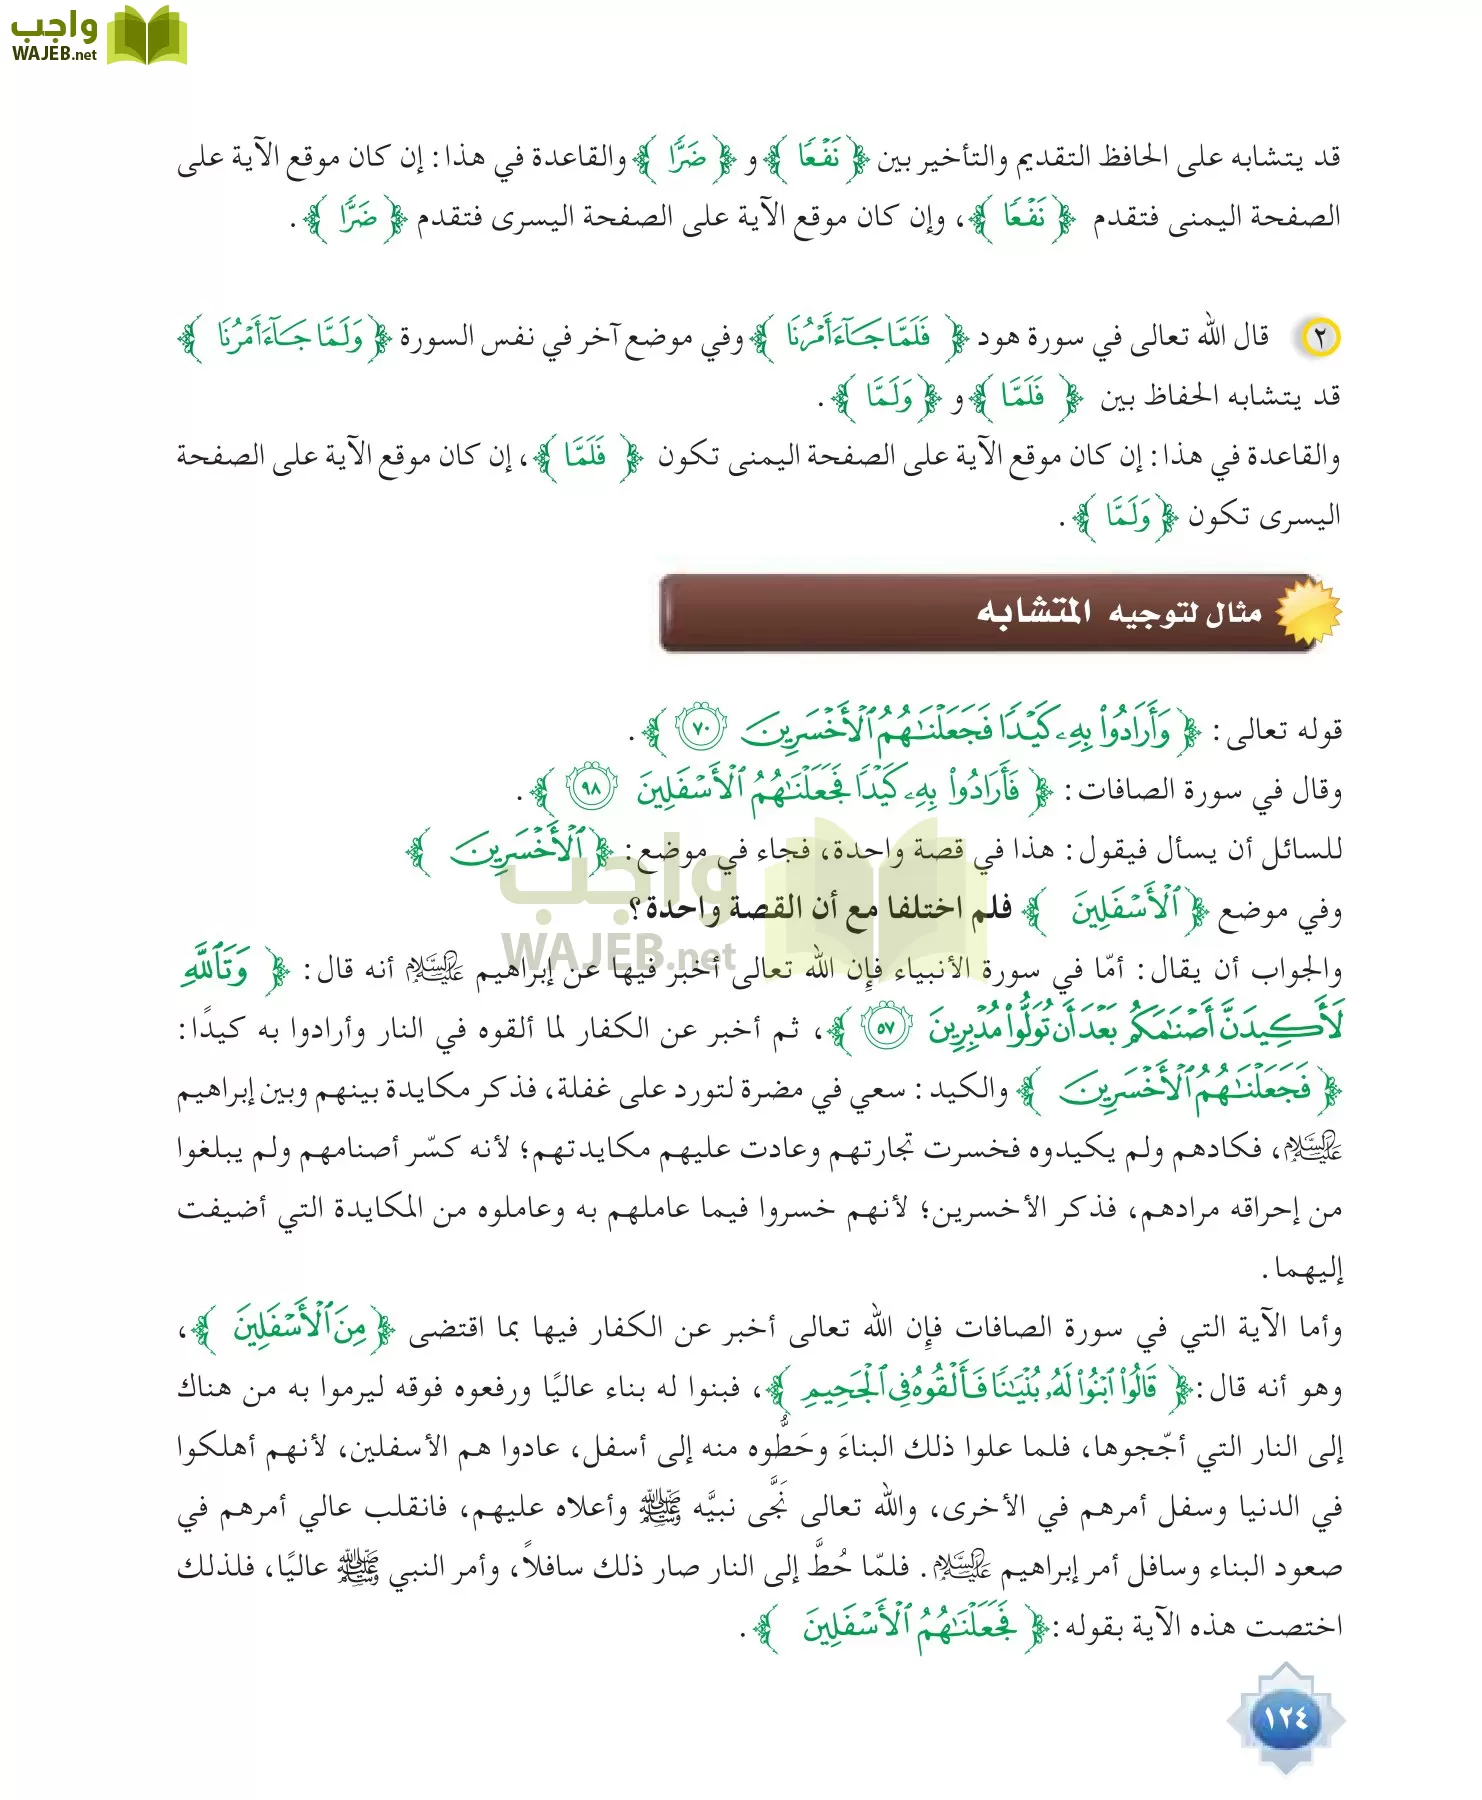 واجب
WAJEB.net
قد يتشابه على الحافظ التقديم والتأخير بين ﴿ نَفۡعٗا ﴾ و ﴿ ضَرّٗا ﴾ والقاعدة في هذا: إن كان موقع الآية على
الصفحة اليمنى فتقدم ﴿ نَفۡعٗا ﴾، وإن كان موقع الآية على الصفحة اليسرى فتقدم ﴿ ضَرّٗا ﴾.
٢ قال الله تعالى في سورة هود ﴿ فَلَمَّا جَآءَ أَمۡرُنَا ﴾ وفي موضع آخر في نفس السورة ﴿ وَلَمَّا جَآءَ أَمۡرُنَا ﴾
قد يتشابه الحفاظ بين ﴿ فَلَمَّا ﴾ و ﴿ وَلَمَّا ﴾.
والقاعدة في هذا: إن كان موقع الآية على الصفحة اليمنى تكون ﴿ فَلَمَّا ﴾، إن كان موقع الآية على الصفحة
اليسرى تكون ﴿ وَلَمَّا ﴾.
مثال لتوجيه المتشابه
قوله تعالى: ﴿ وَأَرَادُواْ بِهِۦ كَيۡدٗا فَجَعَلۡنَٰهُمُ ٱلۡأَخۡسَرِينَ ٧٠ ﴾.
وقال في سورة الصافات: ﴿ فَأَرَادُواْ بِهِۦ كَيۡدٗا فَجَعَلۡنَٰهُمُ ٱلۡأَسۡفَلِينَ ٩٨ ﴾.
للسائل أن يسأل فيقول: هذا في قصة واحدة، فجاء في موضع: ﴿ ٱلۡأَخۡسَرِينَ ﴾
وفي موضع ﴿ ٱلۡأَسۡفَلِينَ ﴾ فلم اختلفا مع أن القصة واحدة؟
والجواب أن يقال: أمّا في سورة الأنبياء فإن الله تعالى أخبر فيها عن إبراهيم عليه السلام أنه قال: ﴿ وَتَٱللَّهِ
لَأَكِيدَنَّ أَصۡنَٰمَكُم بَعۡدَ أَن تُوَلُّواْ مُدۡبِرِينَ ٥٧ ﴾، ثم أخبر عن الكفار لما ألقوه في النار وأرادوا به كيدًا:
﴿ فَجَعَلۡنَٰهُمُ ٱلۡأَخۡسَرِينَ ﴾ والكيد: سعي في مضرة لتورد على غفلة، فذكر مكايدة بينهم وبين إبراهيم
عليه السلام، فكادهم ولم يكيدوه فخسرت تجارتهم وعادت عليهم مكايدتهم؛ لأنه كسّر أصنامهم ولم يبلغوا
من إحراقه مرادهم، فذكر الأخسرين؛ لأنهم خسروا فيما عاملهم به وعاملوه من المكايدة التي أضيفت
إليهما.
وأما الآية التي في سورة الصافات فإن الله تعالى أخبر عن الكفار فيها بما اقتضى ﴿ مِنَ ٱلۡأَسۡفَلِينَ ﴾،
وهو أنه قال: ﴿ قَالُواْ ٱبۡنُواْ لَهُۥ بُنۡيَٰنٗا فَأَلۡقُوهُ فِي ٱلۡجَحِيمِ ﴾، فبنوا له بناء عاليًا ورفعوه فوقه ليرموا به من هناك
إلى النار التي أجّجوها، فلما علوا ذلك البناءَ وحَطُّوه منه إلى أسفل، عادوا هم الأسفلين، لأنهم أهلكوا
في الدنيا وسفل أمرهم في الأخرى، والله تعالى نَجَّى نبيَّه ﷺ وأعلاه عليهم، فانقلب عالي أمرهم في
صعود البناء وسافل أمر إبراهيم عليه السلام. فلمّا حُطَّ إلى النار صار ذلك سافلاً، وأمر النبي ﷺ عاليًا، فلذلك
اختصت هذه الآية بقوله: ﴿ فَجَعَلۡنَٰهُمُ ٱلۡأَسۡفَلِينَ ﴾.
واجب
WAJEB.net
١٢٤